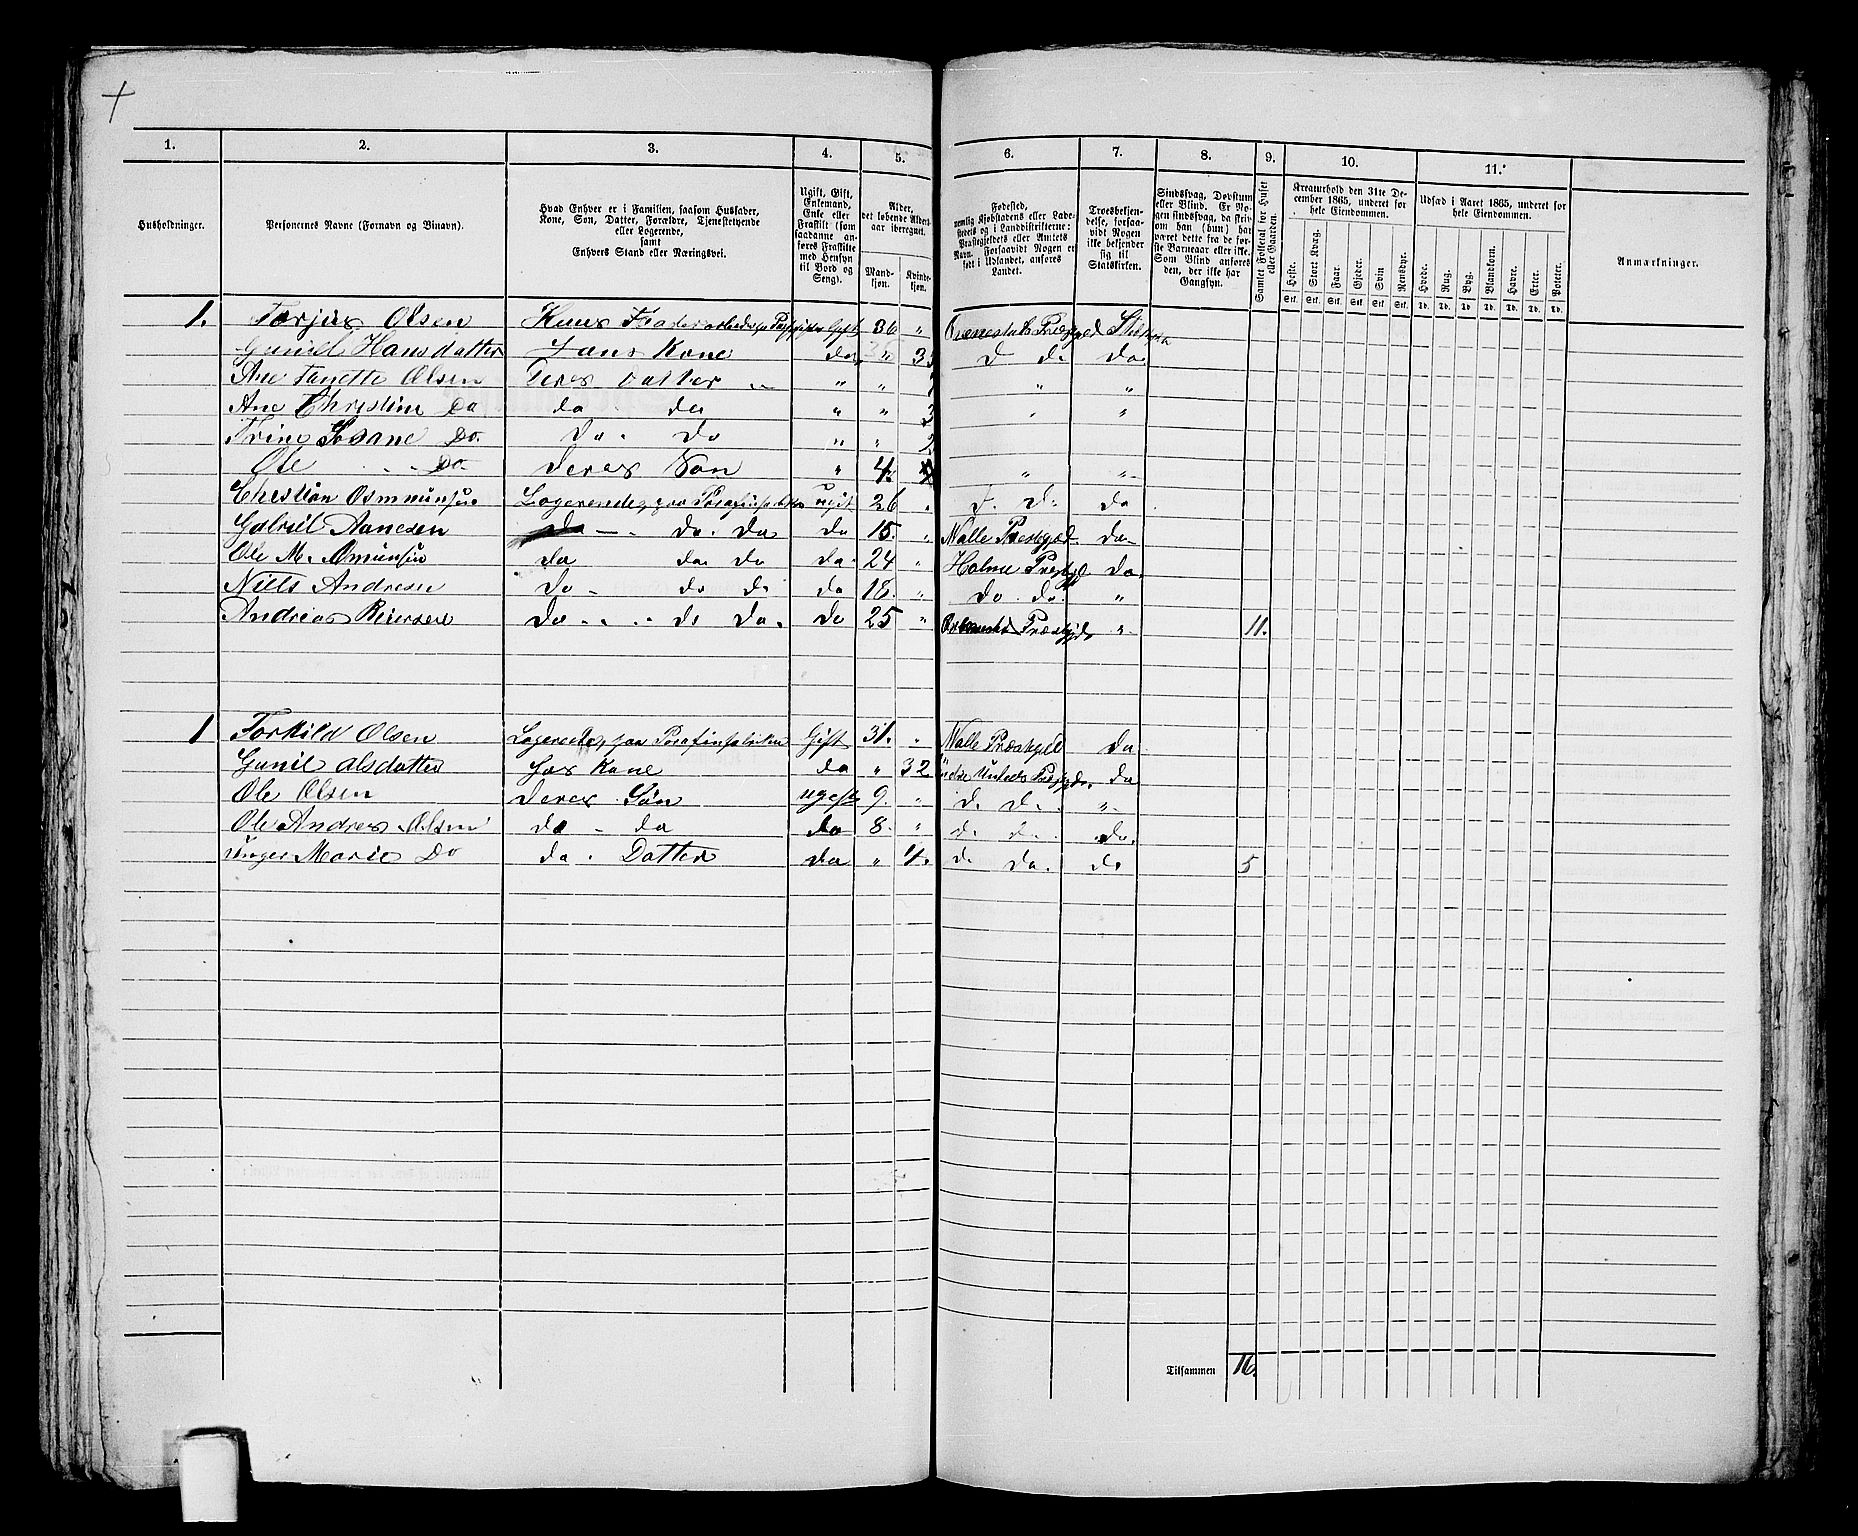 1. 2. 3. 4. 5. 6. 7. 8. 9. 10. 11.
Husholdninger.
Personernes Navne (Fornavn og Binavn).
Hvad Enhver er i Familien, saasom Husfader,
Kone, Søn, Datter, Forældre, Tjenestetyende
eller Logerende,
samt
Enhvers Stand eller Næringsvei.
Ugift, Gift,
Enkemand,
Enke eller
Fraskilt (som
saadanne an-
føres Fraskilte
med Hensyn
til Bord og
Seng).
Alder,
det løbende Alders-
aar iberegnet.
Mand-
kjøn.
Kvinde-
kjøn.
Fødested,
nemlig Kjøbstadens eller Lade-
stedets og i Landdistrikterne:
Præstegjeldets eller Amtets
Navn. Forsaavidt Nogen er
født i Udlandet, anføres
Landet.
Troesbekjen-
delse, forsaa-
vidt Nogen
ikke bekjender
sig til
Statskirken.
Sindssvag, Døvstum
eller Blind. Er No-
gen sindssvag, da skriv
om han (hun) har
været dette fra de før-
ste Barneaar eller ikke.
Som Blind anføres
den, der ikke har
Gangsyn.
Samlet Folketal for Huset
eller Gaarden.
Kreaturhold den 31te De-
cember 1865, underet for
hele Eiendommen.
Heste. Stort Kvæg. Faar. Gjeder. Svin Rensdyr.
Stk. Stk. Stk. Stk. Stk. Stk.
Udsæd i Aaret 1865, underet for
hele Eiendommen.
Hvede. Rug. Byg. Blandkorn. Havre. Erter. Poteter.
Td. Td. Td. Td. Td. Td. Td.
Anmærkninger.
1. Torjus Olsen Huus Fader Gift 36 "
Gunild Hansdatter Hans Kone do " do
Ane Tanette Olsen Deres Datter " " " "
Ane Christine Do do do " " "
Trine Do. Do. Do " "
Ole Do. Deres Søn " 4. " "
Christian Osmunsen Logerende, paa ugift 26 " do
Gabriel Aanesen do Do. Da do 15. " Præstgjd do
Ole M. Omunsen da do do do. 24 " Præstgjd Do.
Niels Andresen Do do do do 18. " Do do. "
Andreas Reiersen Do do Do. do 25 " " 11.
1 Torkild Olsen Logerende, paa Gift 31. " Præstgjd do
Gunil Hans Kone do " 32 do
Ole Olsen Deres Søn ugift 9. " d. d. "
Ole Andres Olsen do do do 8. " d. d. do.
Marie Do do. Datter do " 4. d. do. do 5
Tilsammen 16.